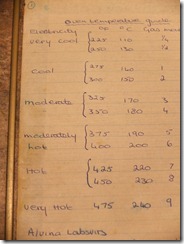 ①
oven temperature guide
electricity °F °C Gas mark
very cool 225 110 ¼
250 130 ½
Cool 275 140 1
300 150 2
moderate 325 170 3
350 180 4
moderately 375 190 5
hot 400 200 6
Hot 425 220 7
450 230 8
very Hot 475 240 9
Alvina